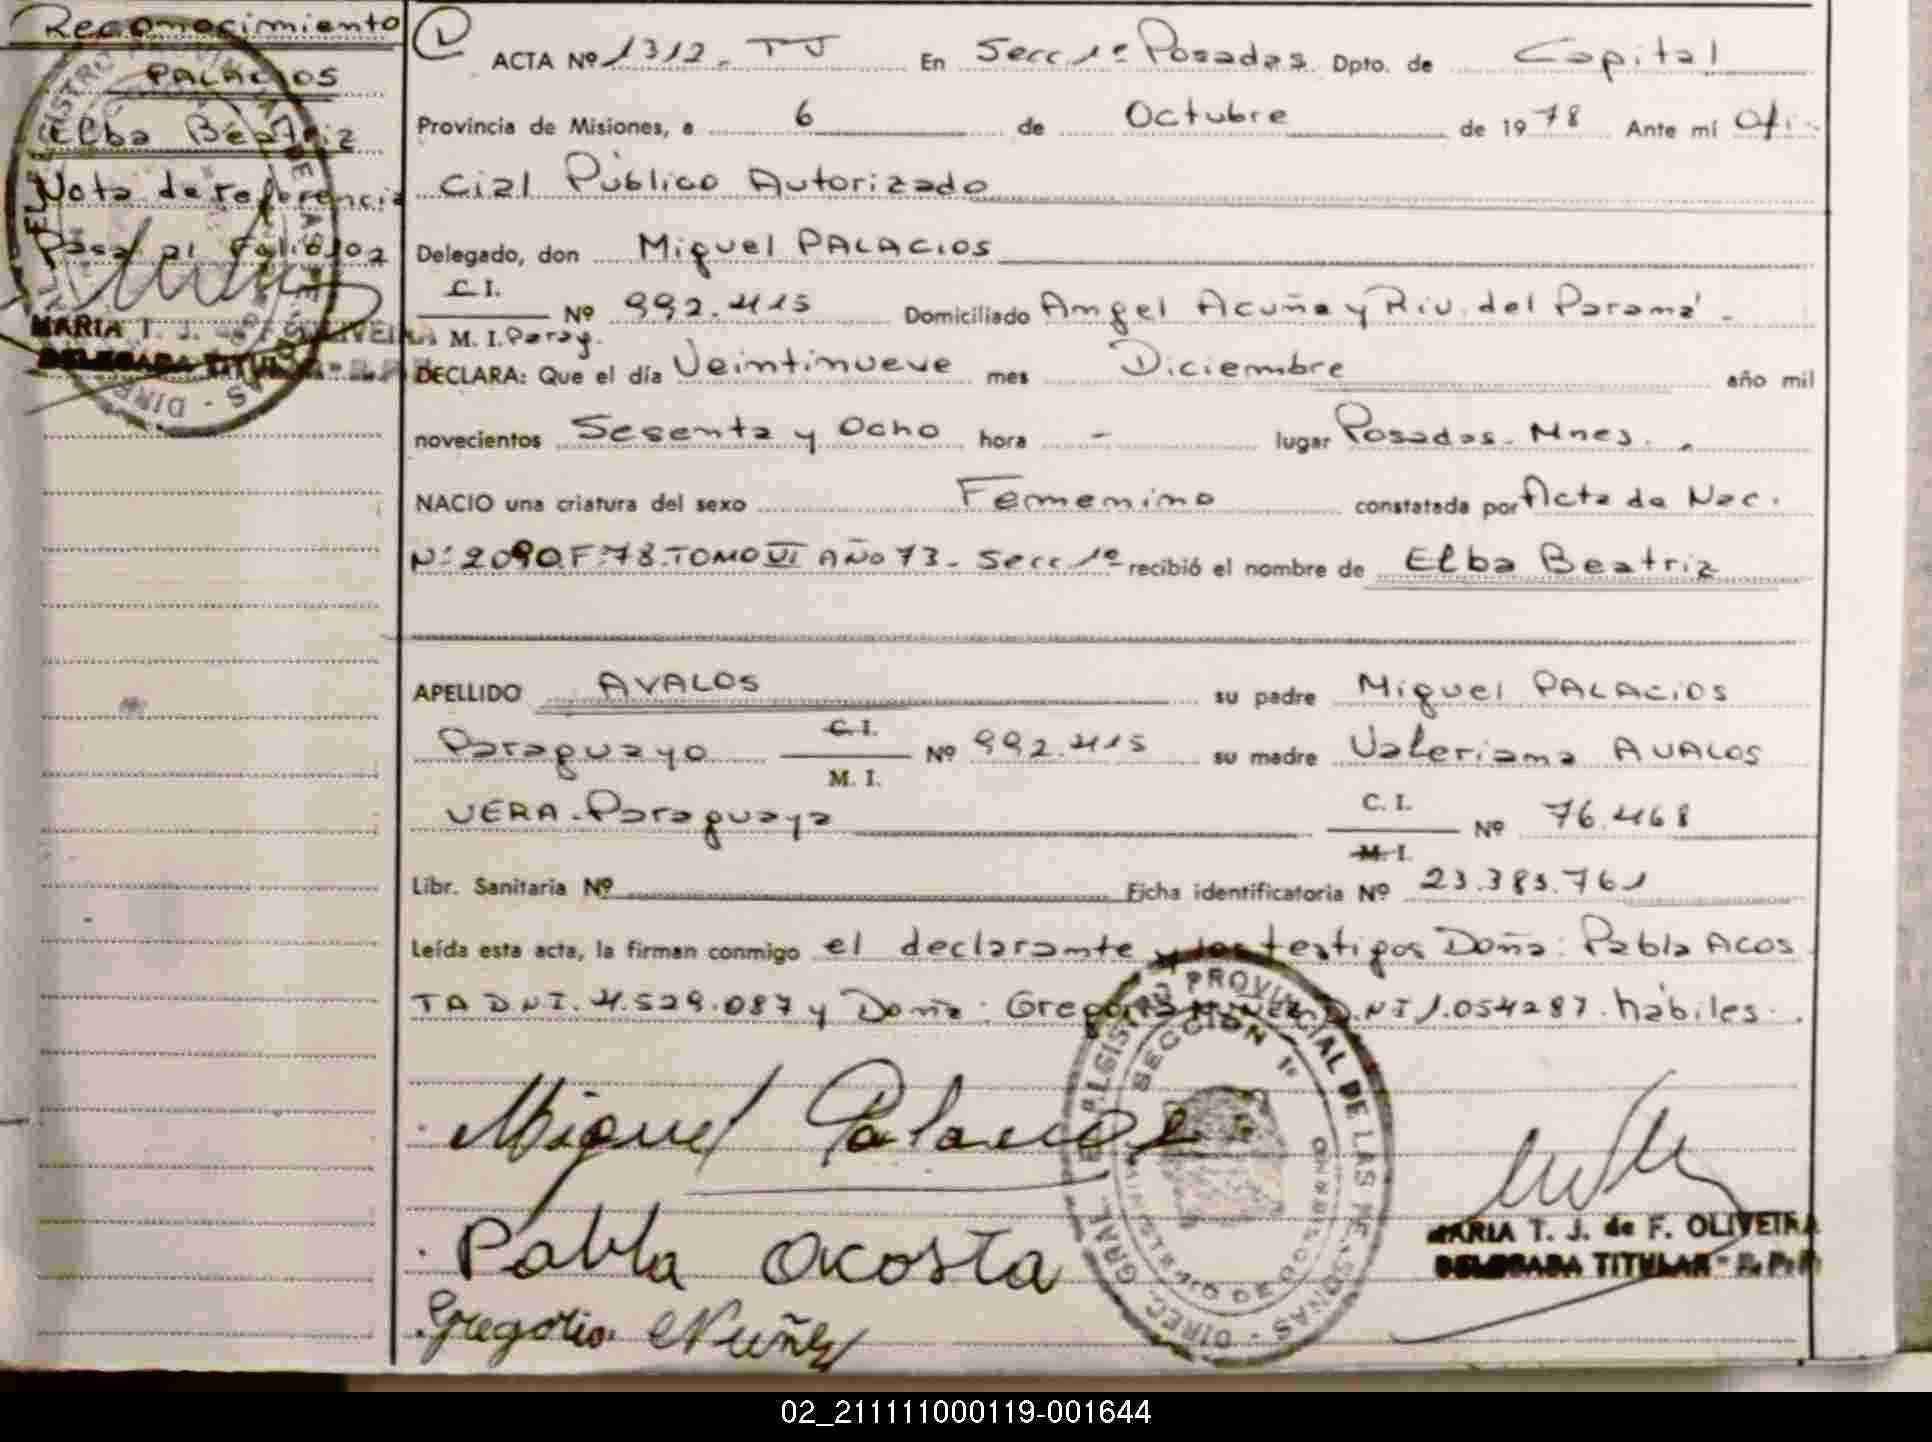 Reconocimiento
PALACIOS
Elba Beatriz
Nota de referencia
Pasa al Folio 302
MARIA T. J. de F. OLIVEIRA
DELEGADA TITULAR - R.P.P.
ACTA Nº 1312. TJ En Secc. 1º Posadas Dpto. de Capital
Provincia de Misiones, a 6 de Octubre de 1978 Ante mí Ofi-
cial Público Autorizado
Delegado, don Miguel PALACIOS
C.I.
M. I. Parag. Nº 992.415 Domiciliado Angel Acuña y Riv. del Paraná -
DECLARA: Que el día Veintinueve mes Diciembre año mil
novecientos Sesenta y Ocho hora - lugar Posadas. Mnes.
NACIO una criatura del sexo Femenino constatada por Acta de Nac.
Nº 2090 F: 78. TOMO VI AÑO 73 - Secc 1º recibió el nombre de Elba Beatriz
APELLIDO AVALOS su padre Miguel PALACIOS
Paraguayo C.I. M. I. Nº 992.415 su madre Valeriana AVALOS
VERA - Paraguaya C. I. M. I. Nº 76.468
Libr. Sanitaria Nº Ficha identificatoria Nº 23.383.761
Leída esta acta, la firman conmigo el declarante y los testigos Doña: Pabla ACOS
TA D.N.I. 4.529.087 y Doña: Gregoria NUÑEZ D.N.I 1.054287. hábiles.
Miguel Palacios
Pabla Acosta
Gregoria Nuñez
DIREC. GRAL. DEL REGISTRO PROVINCIAL DE LAS PERSONAS
SECCION 1º
MARIA T. J. de F. OLIVEIRA
DELEGADA TITULAR - R.P.P.
02_211111000119-001644